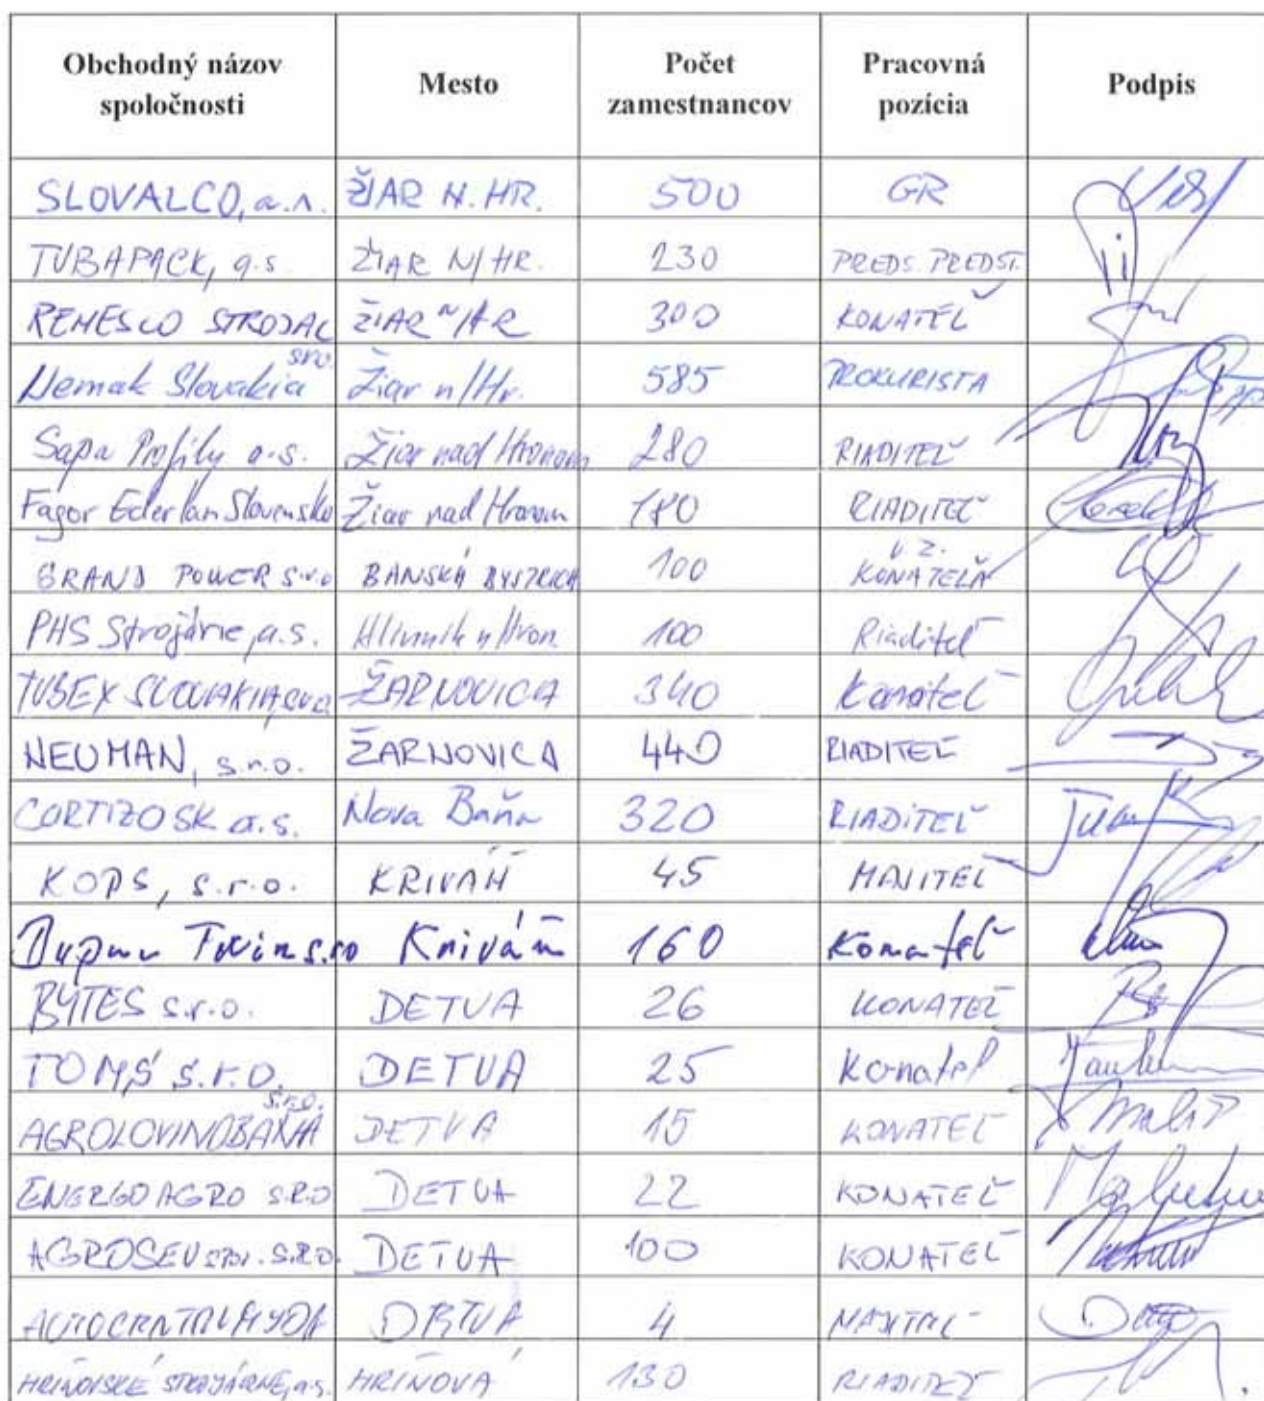 Obchodný názov spoločnosti | Mesto | Počet zamestnancov | Pracovná pozícia | Podpis
SLOVALCO, a.s. ŽIAR N. HR. 500 GR
TUBAPACK, a.s. ŽIAR N/HR. 230 PREDS. PREDST.
REMESLO STROJAL ŽIAR N/HR 300 KONATEĽ
Nemak Slovakia s.r.o. Žiar n/Hr. 585 PROKURISTA
Sapa Profily a.s. Žiar nad Hronom 280 RIADITEĽ
Fagor Ederlan Slovensko Žiar nad Hronom 180 RIADITEĽ
GRAND POWER s.r.o BANSKÁ BYSTRICA 100 V. Z. KONATEĽA
PHS Strojárne, a.s. Hliník n/Hron. 100 Riaditeľ
TUBEX SLOVAKIA, s.r.o ŽARNOVICA 340 Konateľ
NEUMAN, s.r.o. ŽARNOVICA 440 RIADITEĽ
CORTIZO SK a.s. Nova Baňa 320 RIADITEĽ
KOPS, s.r.o. KRIVÁŇ 45 MAJITEĽ
s.r.o Kriváň 160 Konateľ
BYTES s.r.o. DETVA 26 KONATEĽ
TOMŠ s.r.o. DETVA 25 Konateľ
AGROLOVINOBAŇA s.r.o. DETVA 15 KONATEĽ
ENERGOAGRO S.R.O DETVA 22 KONATEĽ
AGROSEV spol. S.R.O. DETVA 100 KONATEĽ
DETVA 4 MAJITEĽ
HRIŇOVSKÉ STROJÁRNE, a.s. HRIŇOVÁ 130 RIADITEĽ